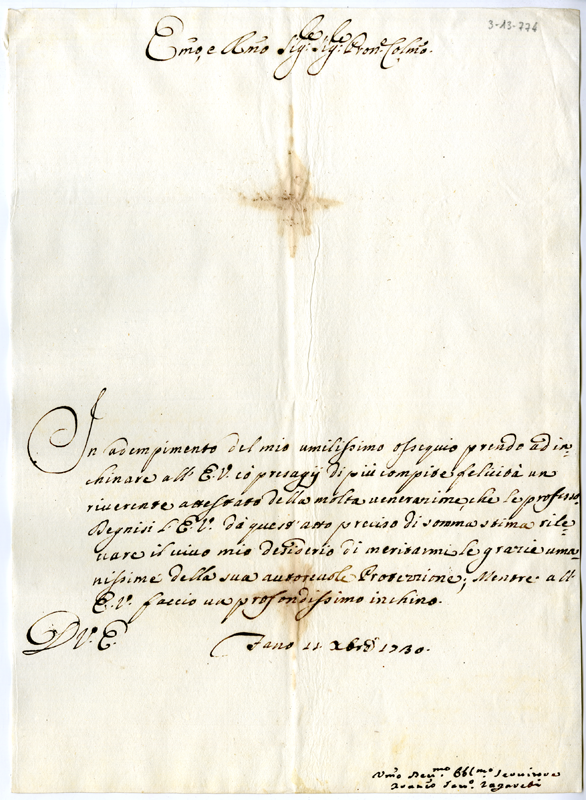 3-13-776
Emo, e Rmo Sigre Sigre Pron Colmo.
In adempimento del mio umilissimo ossequio prendo ad in-
chinare all' E.V. cò presagij di più compite felicità un
riverente attestato della molta venerazione, che le professo.
Degnisi l' E.V. da quest' atto preciso di somma stima rile-
vare il vivo mio desiderio di meritarmi le grazie uma-
nissime della sua autorevole Protezzione; Mentre all'
E.V. faccio un profondissimo inchino.
D V. E.
Fano 11 Xbre 1730.
Umo Devmo Obblmo Servitore